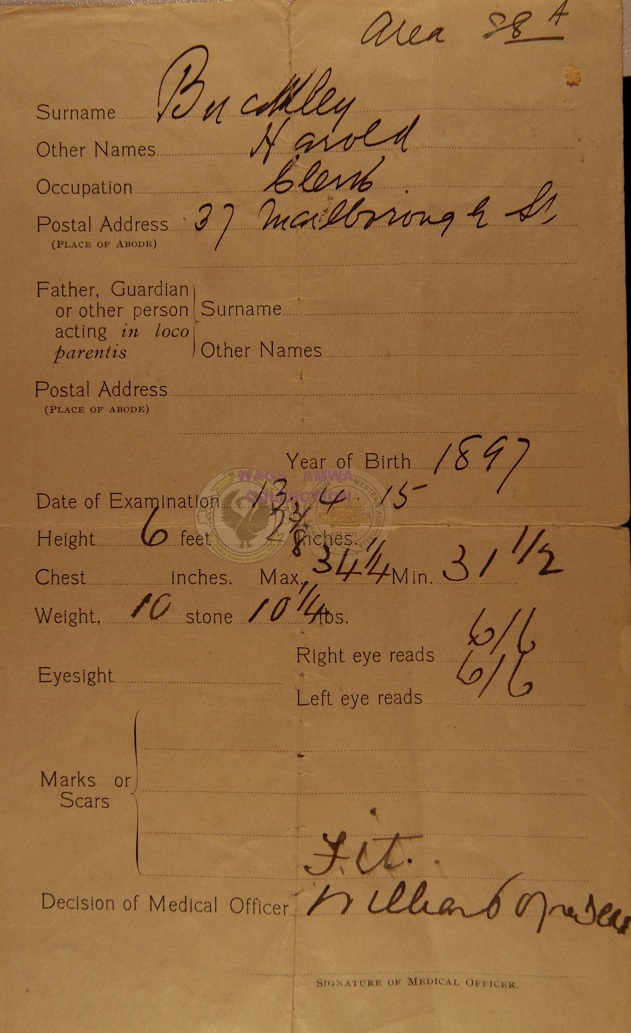 Area 88 A
Surname Buckley
Other Names Harold
Occupation Clerk
Postal Address 37 Marlborough St,
(PLACE OF ABODE)
Father, Guardian or other person acting in loco parentis
Surname
Other Names
Postal Address
(PLACE OF ABODE)
Year of Birth 1897
WAGS - AMWA
COLLECTION
Date of Examination 3. 4 15
Height 6 feet inches.
Chest inches. Max. 34 1/4 Min. 31 1/2
Weight, 10 stone 10 1/4 lbs.
Right eye reads 6/6
Eyesight
Left eye reads 6/6
Marks or Scars
Fit.
Decision of Medical Officer
SIGNATURE OF MEDICAL OFFICER.